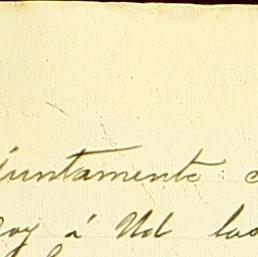 juntamente
doy á Ud las